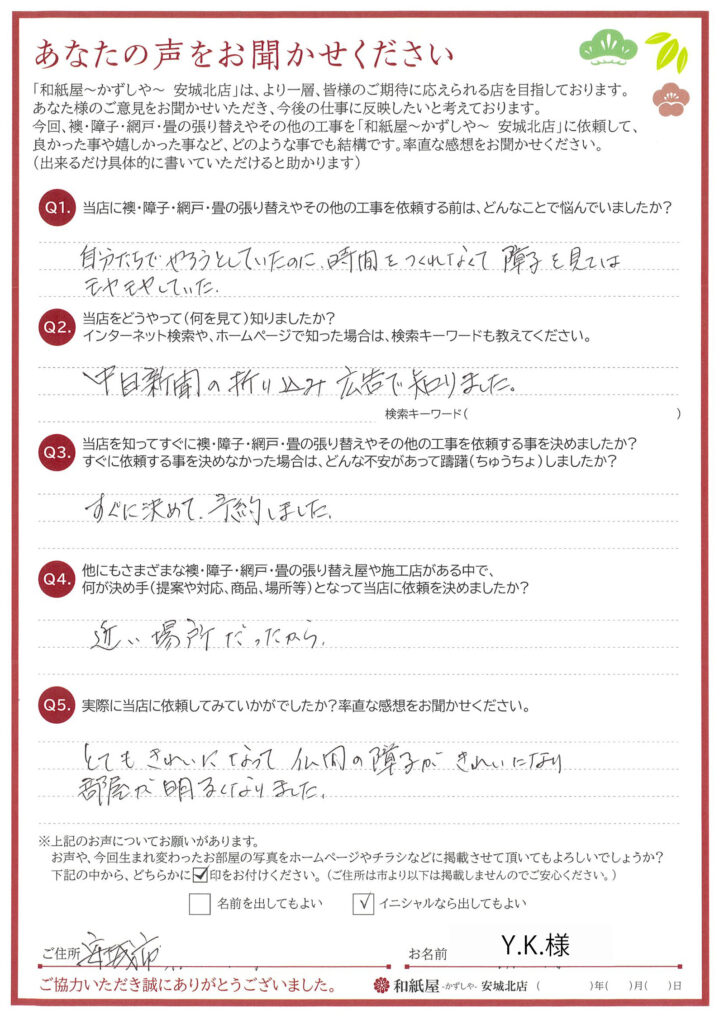 あなたの声をお聞かせください
「和紙屋～かずしや～ 安城北店」は、より一層、皆様のご期待に応えられる店を目指しております。
あなた様のご意見をお聞かせいただき、今後の仕事に反映したいと考えております。
今回、襖・障子・網戸・畳の張り替えやその他の工事を「和紙屋～かずしや～ 安城北店」に依頼して、
良かった事や嬉しかった事など、どのような事でも結構です。率直な感想をお聞かせください。
（出来るだけ具体的に書いていただけると助かります）
Q1. 当店に襖・障子・網戸・畳の張り替えやその他の工事を依頼する前は、どんなことで悩んでいましたか？
自分たちでやろうとしていたのに、時間をつくれなくて障子を見ては
モヤモヤしていた。
Q2. 当店をどうやって（何を見て）知りましたか？
インターネット検索や、ホームページで知った場合は、検索キーワードも教えてください。
中日新聞の折り込み広告で知りました。
検索キーワード（ ）
Q3. 当店を知ってすぐに襖・障子・網戸・畳の張り替えやその他の工事を依頼する事を決めましたか？
すぐに依頼する事を決めなかった場合は、どんな不安があって躊躇（ちゅうちょ）しましたか？
すぐに決めて、予約しました。
Q4. 他にもさまざまな襖・障子・網戸・畳の張り替え屋や施工店がある中で、
何が決め手（提案や対応、商品、場所等）となって当店に依頼を決めましたか？
近い場所だったから。
Q5. 実際に当店に依頼してみていかがでしたか？率直な感想をお聞かせください。
とてもきれいになって仏間の障子がきれいになり
部屋が明るくなりました。
※上記のお声についてお願いがあります。
お声や、今回生まれ変わったお部屋の写真をホームページやチラシなどに掲載させて頂いてもよろしいでしょうか？
下記の中から、どちらかに✓印をお付けください。（ご住所は市より以下は掲載しませんのでご安心ください。）
名前を出してもよい ✓ イニシャルなら出してもよい
ご住所 安城市 お名前 Y.K.様
ご協力いただき誠にありがとうございました。 和紙屋 -かずしや- 安城北店 （ ）年（ ）月（ ）日